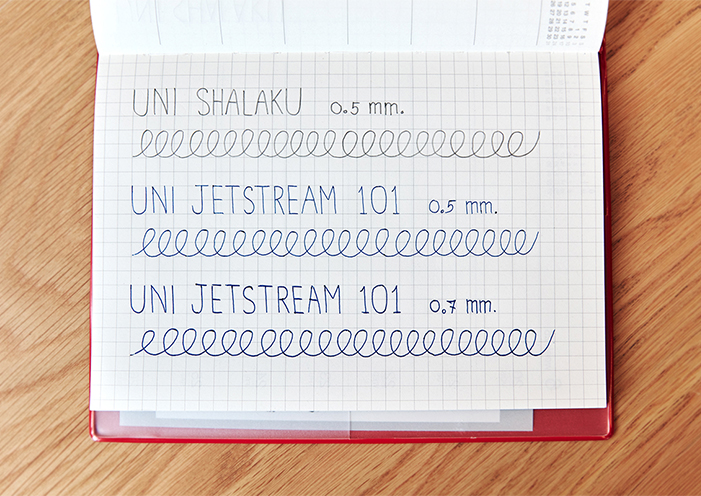 UNI SHALAKU 0.5 mm.
UNI JETSTREAM 101 0.5 mm.
UNI JETSTREAM 101 0.7 mm.